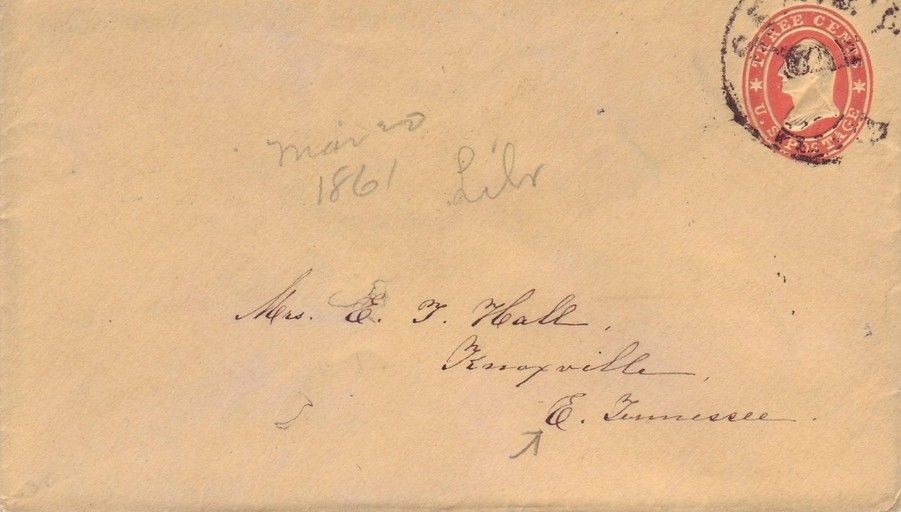 THREE CENTS
U.S. POSTAGE
Mar 20
1861
Libr
Mrs. E. T. Hall,
Knoxville,
E. Tennessee.